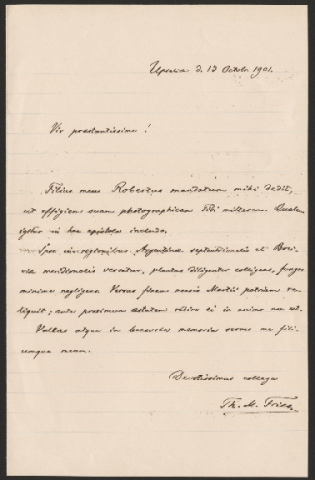 Upsala d. 13 Octob. 1901.
Vir praestantissime!
Filius meus Robertus mandatum mihi dedit,
ut effigiem suam photographicam Tibi mitterem. Quam
igitur in hac epistola includo.
Ipse in regionibus Argentinae septentrionalis et Boli-
viae meridionalis versatur, plantas diligenter colligens, fungos
minime negligens. Versus finem mensis Martii patriam re-
liquit; ante proximam aestatem redire ei in animo non est.
Valeas atque in benevola memoria serves me fili-
umque meum.
Devotissimus collega
Th. M. Fries.